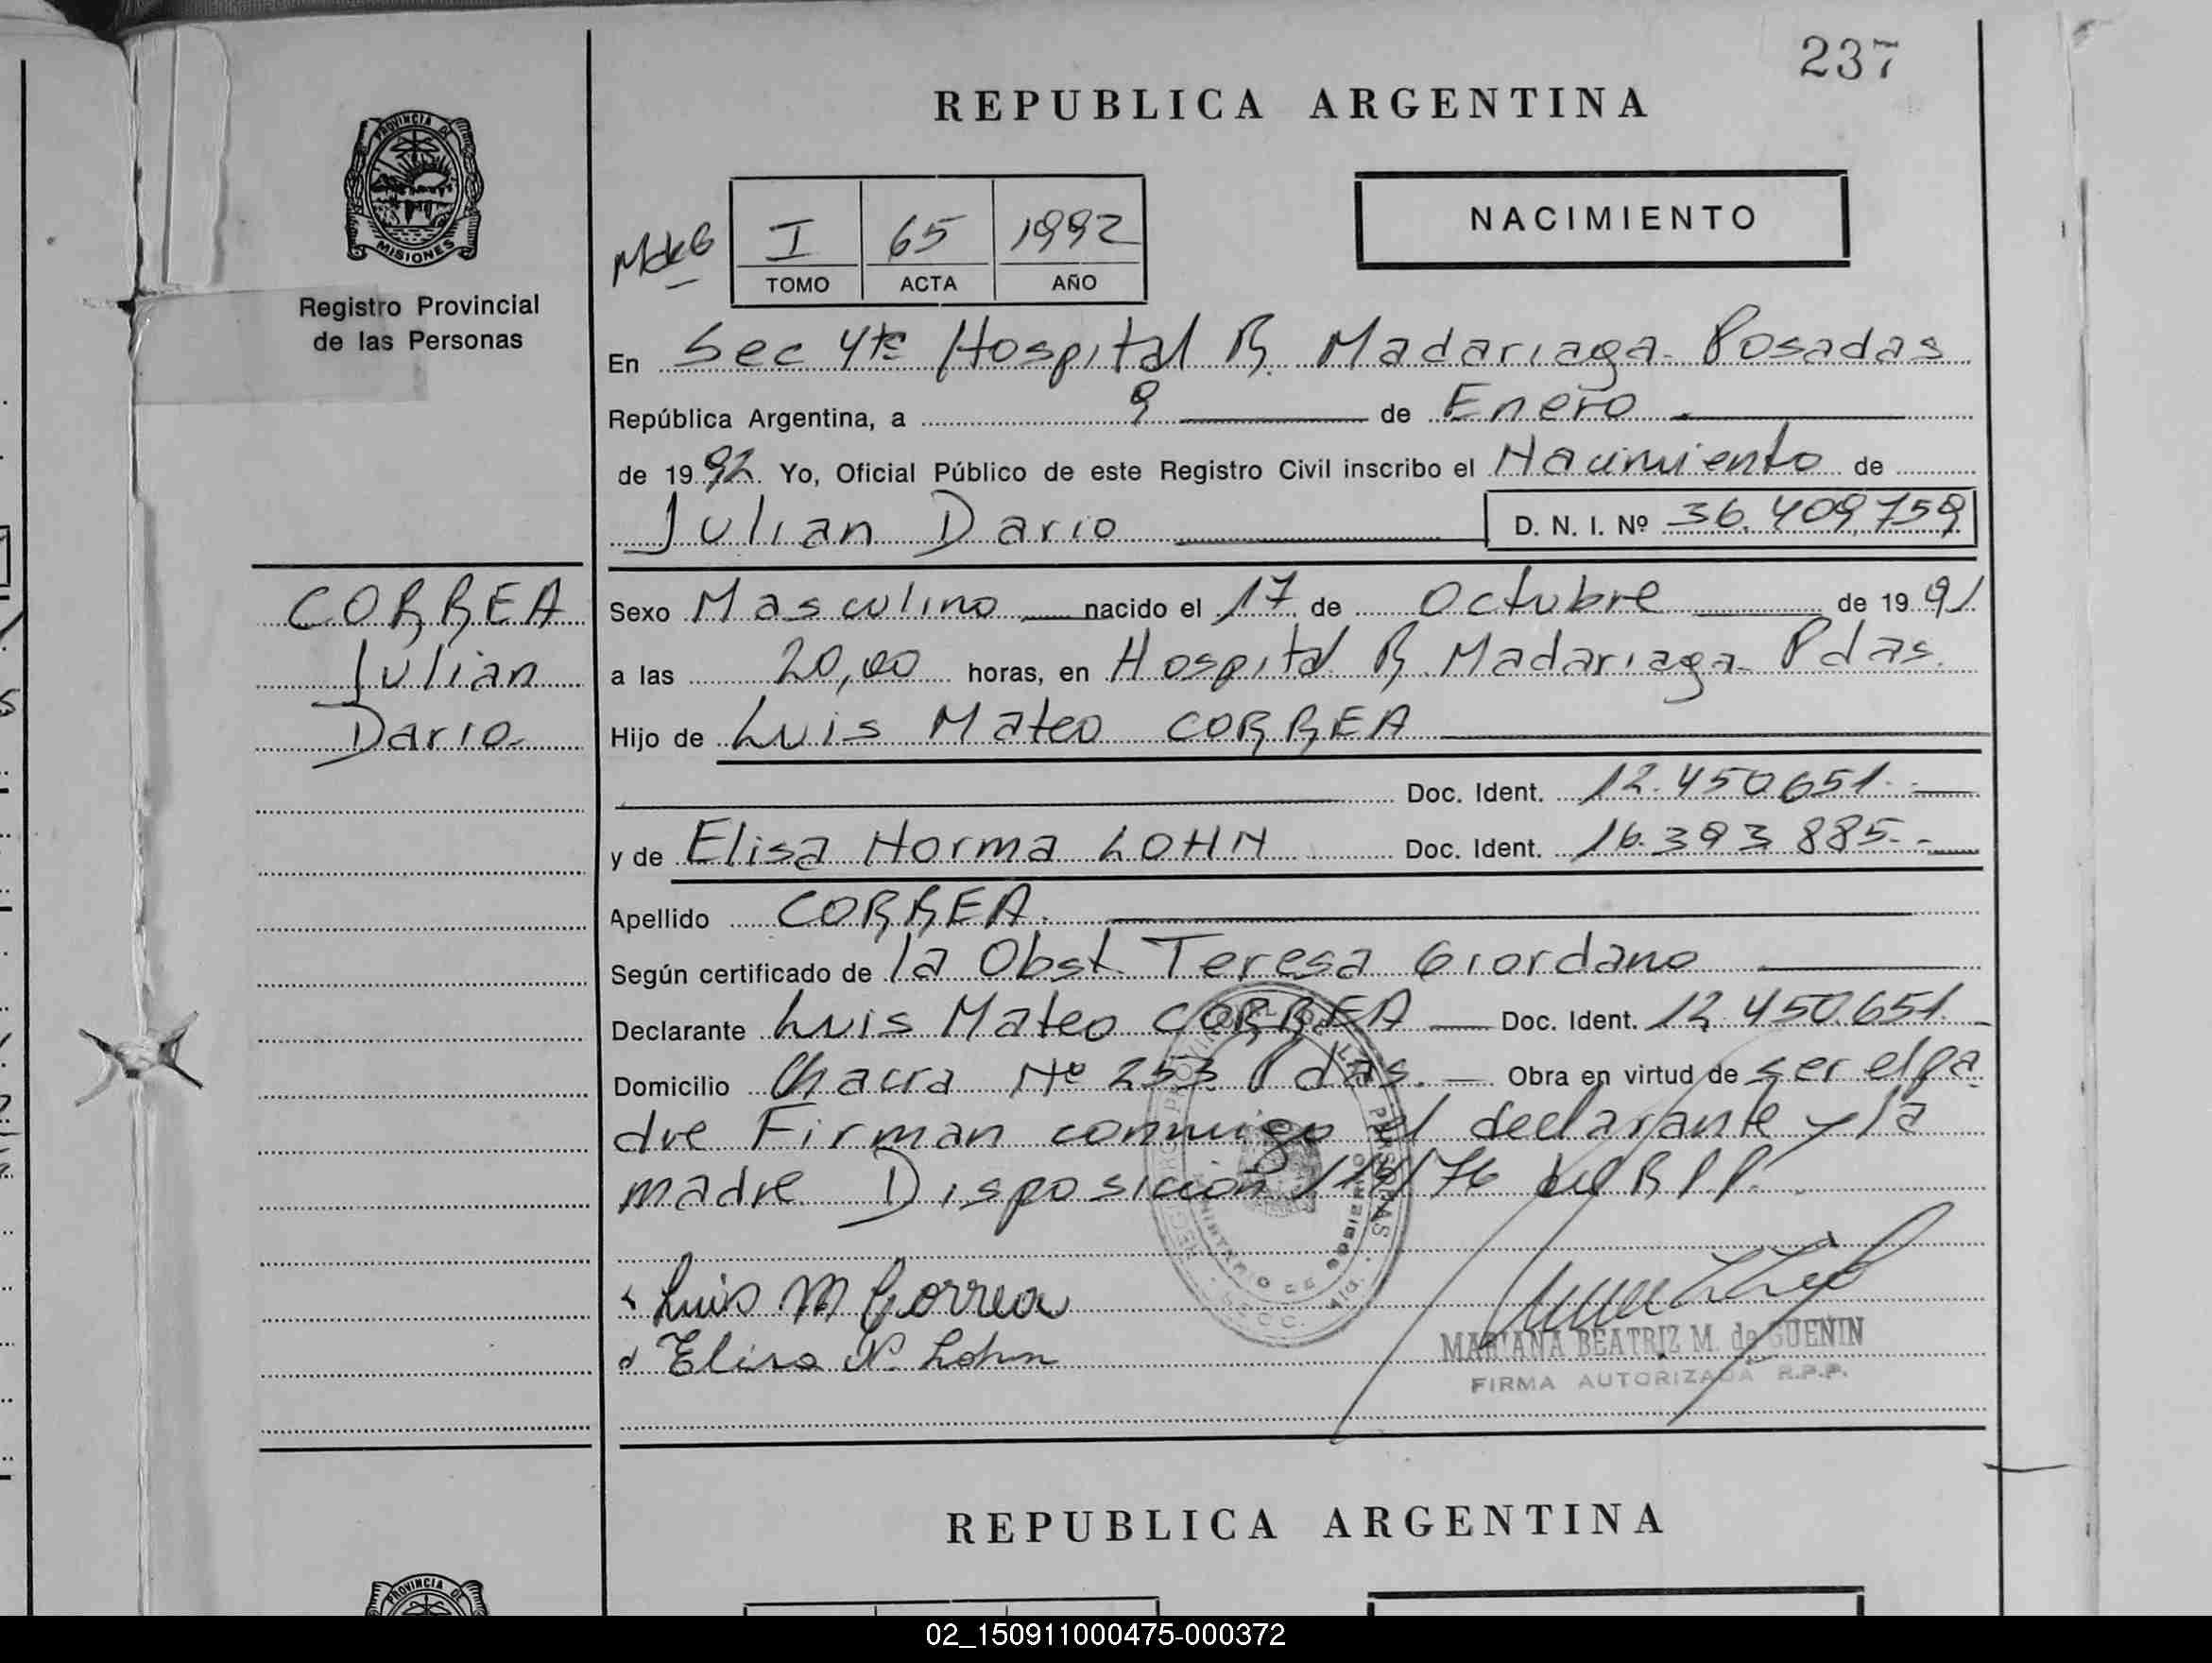 237
REPUBLICA ARGENTINA
PROVINCIA DE
MISIONES
Registro Provincial
de las Personas
NACIMIENTO
I 65 1992
TOMO ACTA AÑO
En Sec 4ta Hospital R. Madariaga - Posadas
República Argentina, a 9 de Enero
de 1992 Yo, Oficial Público de este Registro Civil inscribo el Nacimiento de
Julian Dario D. N. I. Nº 36.409,759
CORREA
Julian
Dario
Sexo Masculino nacido el 17 de Octubre de 1991
a las 20,00 horas, en Hospital R. Madariaga - Pdas.
Hijo de Luis Mateo CORREA
Doc. Ident. 12.450.651.-
y de Elisa Norma LOHN Doc. Ident. 16.393.885.-
Apellido CORREA.
Según certificado de la Obst. Teresa Giordano
Declarante Luis Mateo CORREA Doc. Ident. 12.450.651.
Domicilio Chacra Nº 253 Pdas. Obra en virtud de ser el pa
dre Firman conmigo el declarante y la
madre Disposición /76 del R P P.
Luis M Correa
Elisa N. Lohn
MARIANA BEATRIZ M. de GUENIN
FIRMA AUTORIZADA R.P.P.
REPUBLICA ARGENTINA
PROVINCIA DE
02_150911000475-000372